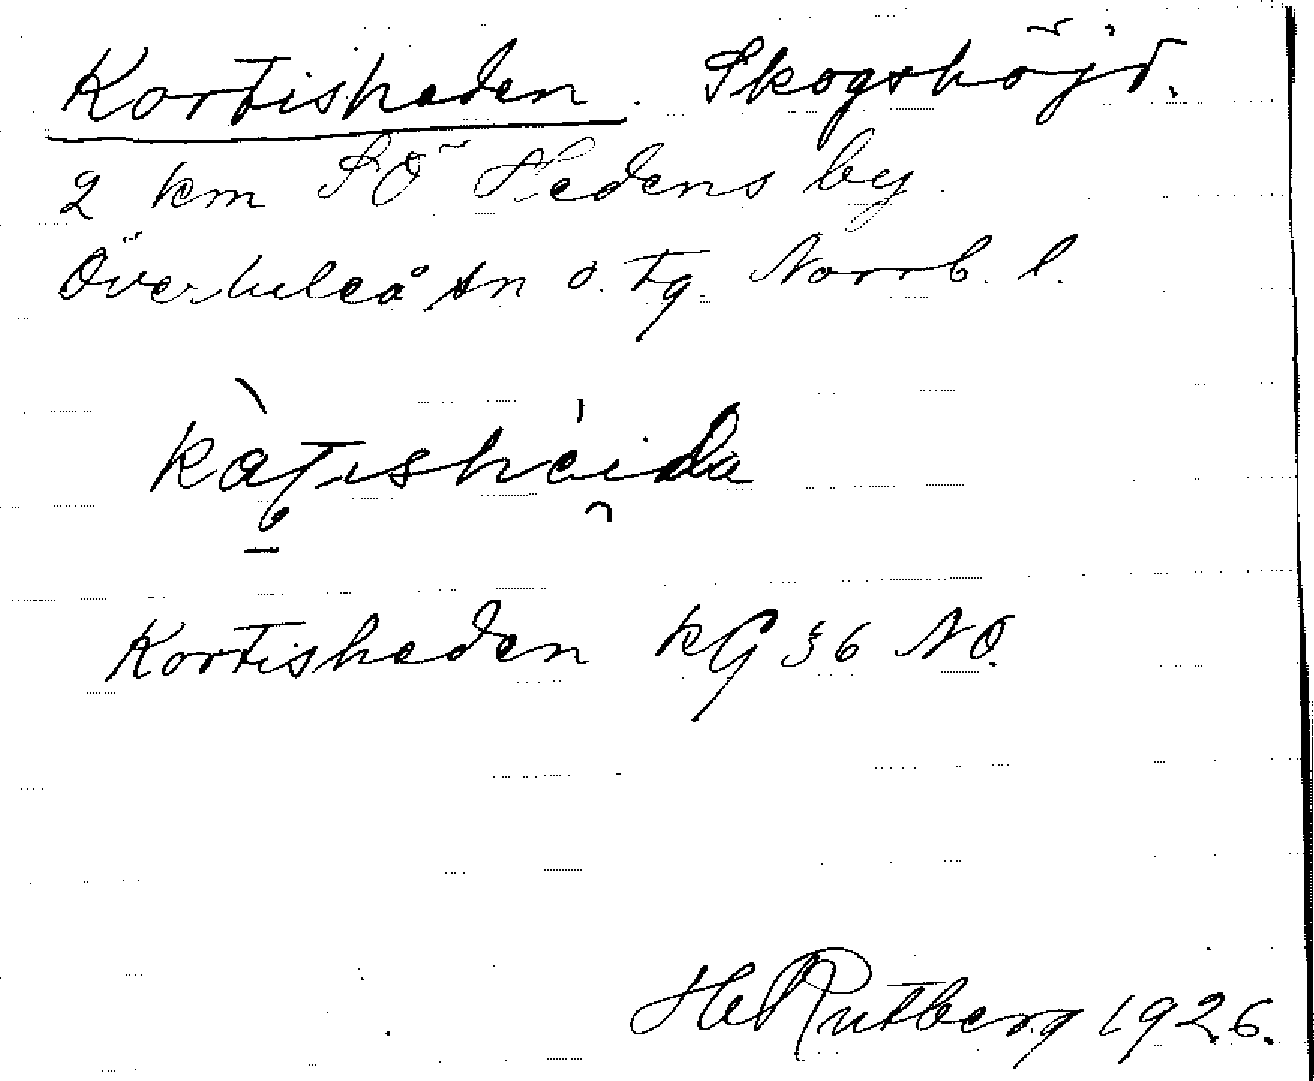 Kortisheden. Skogshöjd.
2 km SÖ Hedens by.
Överluleå sn o. tg. Norrb. l.
Kortisheden KG 36 NO.
H Rutberg 1926.